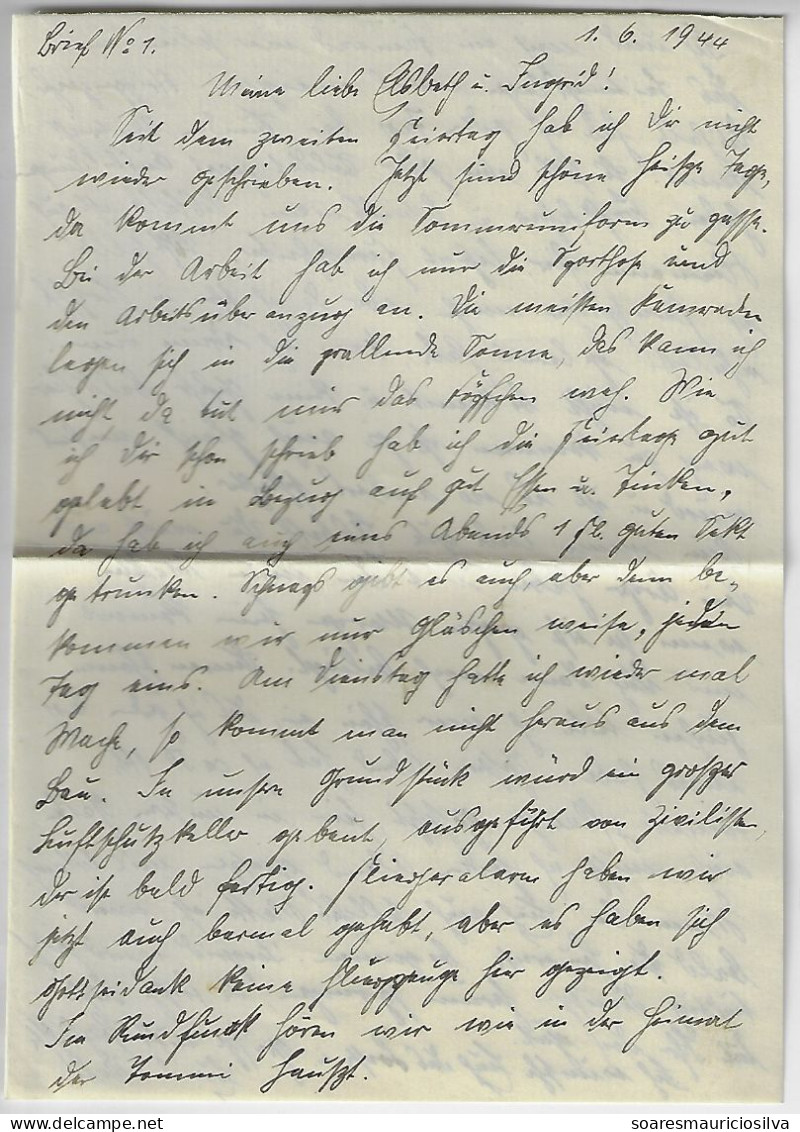 Brief No 1.
1. 6. 1944
Meine liebe Elsbeth u. Ingrid!
Seit dem zweiten Feiertag hab ich Dir nicht
wieder geschrieben. Jetzt sind schöne heiße Tage,
da kommt uns die Sommeruniform zu passe.
Bei der Arbeit hab ich nur die Sporthose und
den Arbeitsüberanzug an. Die meisten Kameraden
legen sich in die prallende Sonne, das kann ich
nicht, da tut mir das Köpfchen weh. Wie
ich Dir schon schrieb hab ich die Feiertage gut
gelebt in Bezug auf gut Essen u. Trinken,
da hab ich auch eines Abends 1 Fl. guten Sekt
getrunken. Schnaps gibt es auch, aber denn be-
kommen wir nur Gläschen weise, jeden
Tag eins. Am Dienstag hatte ich wieder mal
Wache, so kommt man nicht heraus aus dem
Bau. In unsere Grundstück würd ein großer
Luftschutzkeller gebaut, ausgeführt von Zivilisten,
der ist bald fertig. Fliegeralarm haben wir
jetzt auch gehabt, aber es haben sich
Gott sei dank keine Flugzeuge hier gezeigt.
Im Rundfunk hören wir wie in der Heimat
der Tommi haußt.
soaresmauriciosilva